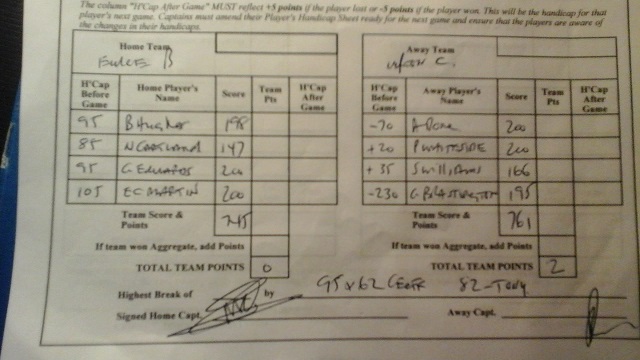 The column "H'Cap After Game" MUST reflect +5 points if the player lost or -5 points if the player won. This will be the handicap for that
player's next game. Captains must amend their Player's Handicap Sheet ready for the next game and ensure that the players are aware of
the changes in their handicaps.
Home Team
B
H'Cap Before Game Home Player's Name Score Team Pts H'Cap After Game
95 B Hughes 198
85 147
95 G Edwards 200
105 EC MARTIN 200
Team Score & Points 745
If team won Aggregate, add Points
TOTAL TEAM POINTS 0
Away Team
C.
H'Cap Before Game Away Player's Name Score Team Pts H'Cap After Game
-70 200
+20 P WHITTSIDE 200
+35 S Williams 166
-230 195
Team Score & Points 761
If team won Aggregate, add Points
TOTAL TEAM POINTS 2
Highest Break of by 95 x 62 82 - Tony
Signed Home Capt. Away Capt.